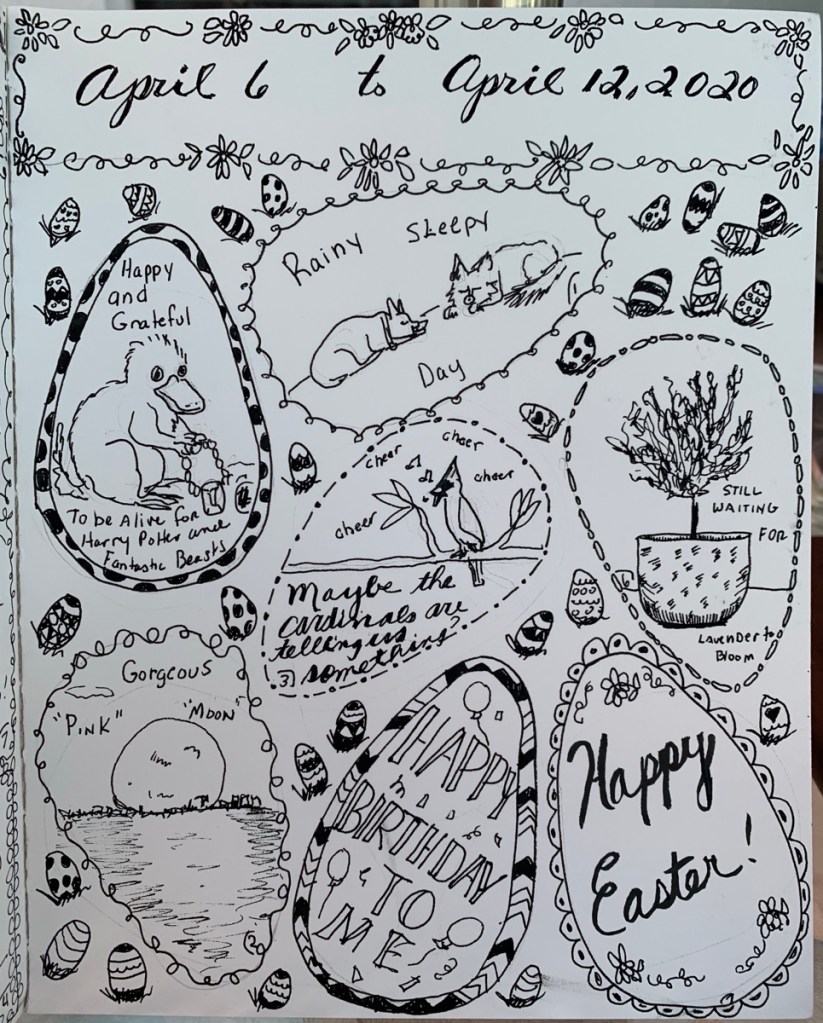 April 6 to April 12, 2020
Rainy Sleepy
Day
Happy
and
Grateful
To be Alive for
Harry Potter and
Fantastic Beasts
cheer cheer
cheer
cheer
Maybe the
cardinals are
telling us
something?
3
STILL
WAITING
FOR
Lavender to
Bloom
Gorgeous
"PINK" "MOON"
2
HAPPY
BIRTHDAY
TO
ME
Happy
Easter!